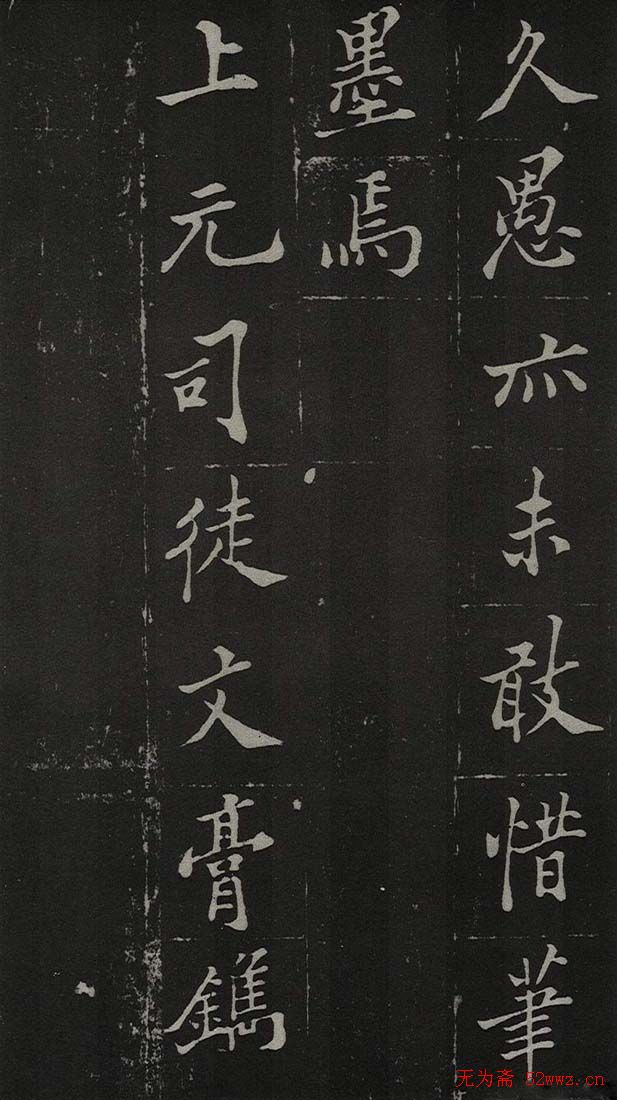 久愚亦未敢惜筆
墨焉
上元司徒文膏鐫
无为斋 52wwz.cn